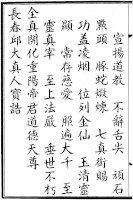 宣揚道教 不辭舌尖 頑石
點頭 豚蛇燉煉 七真街賜
功蓋凌烟 位列金仙 玉清靈
顯 常存慈愛 照遍大千 至
靈真宰 至上法嚴 垂世不朽
全真開化重陽帝君道德天尊
長春邱大真人寶誥